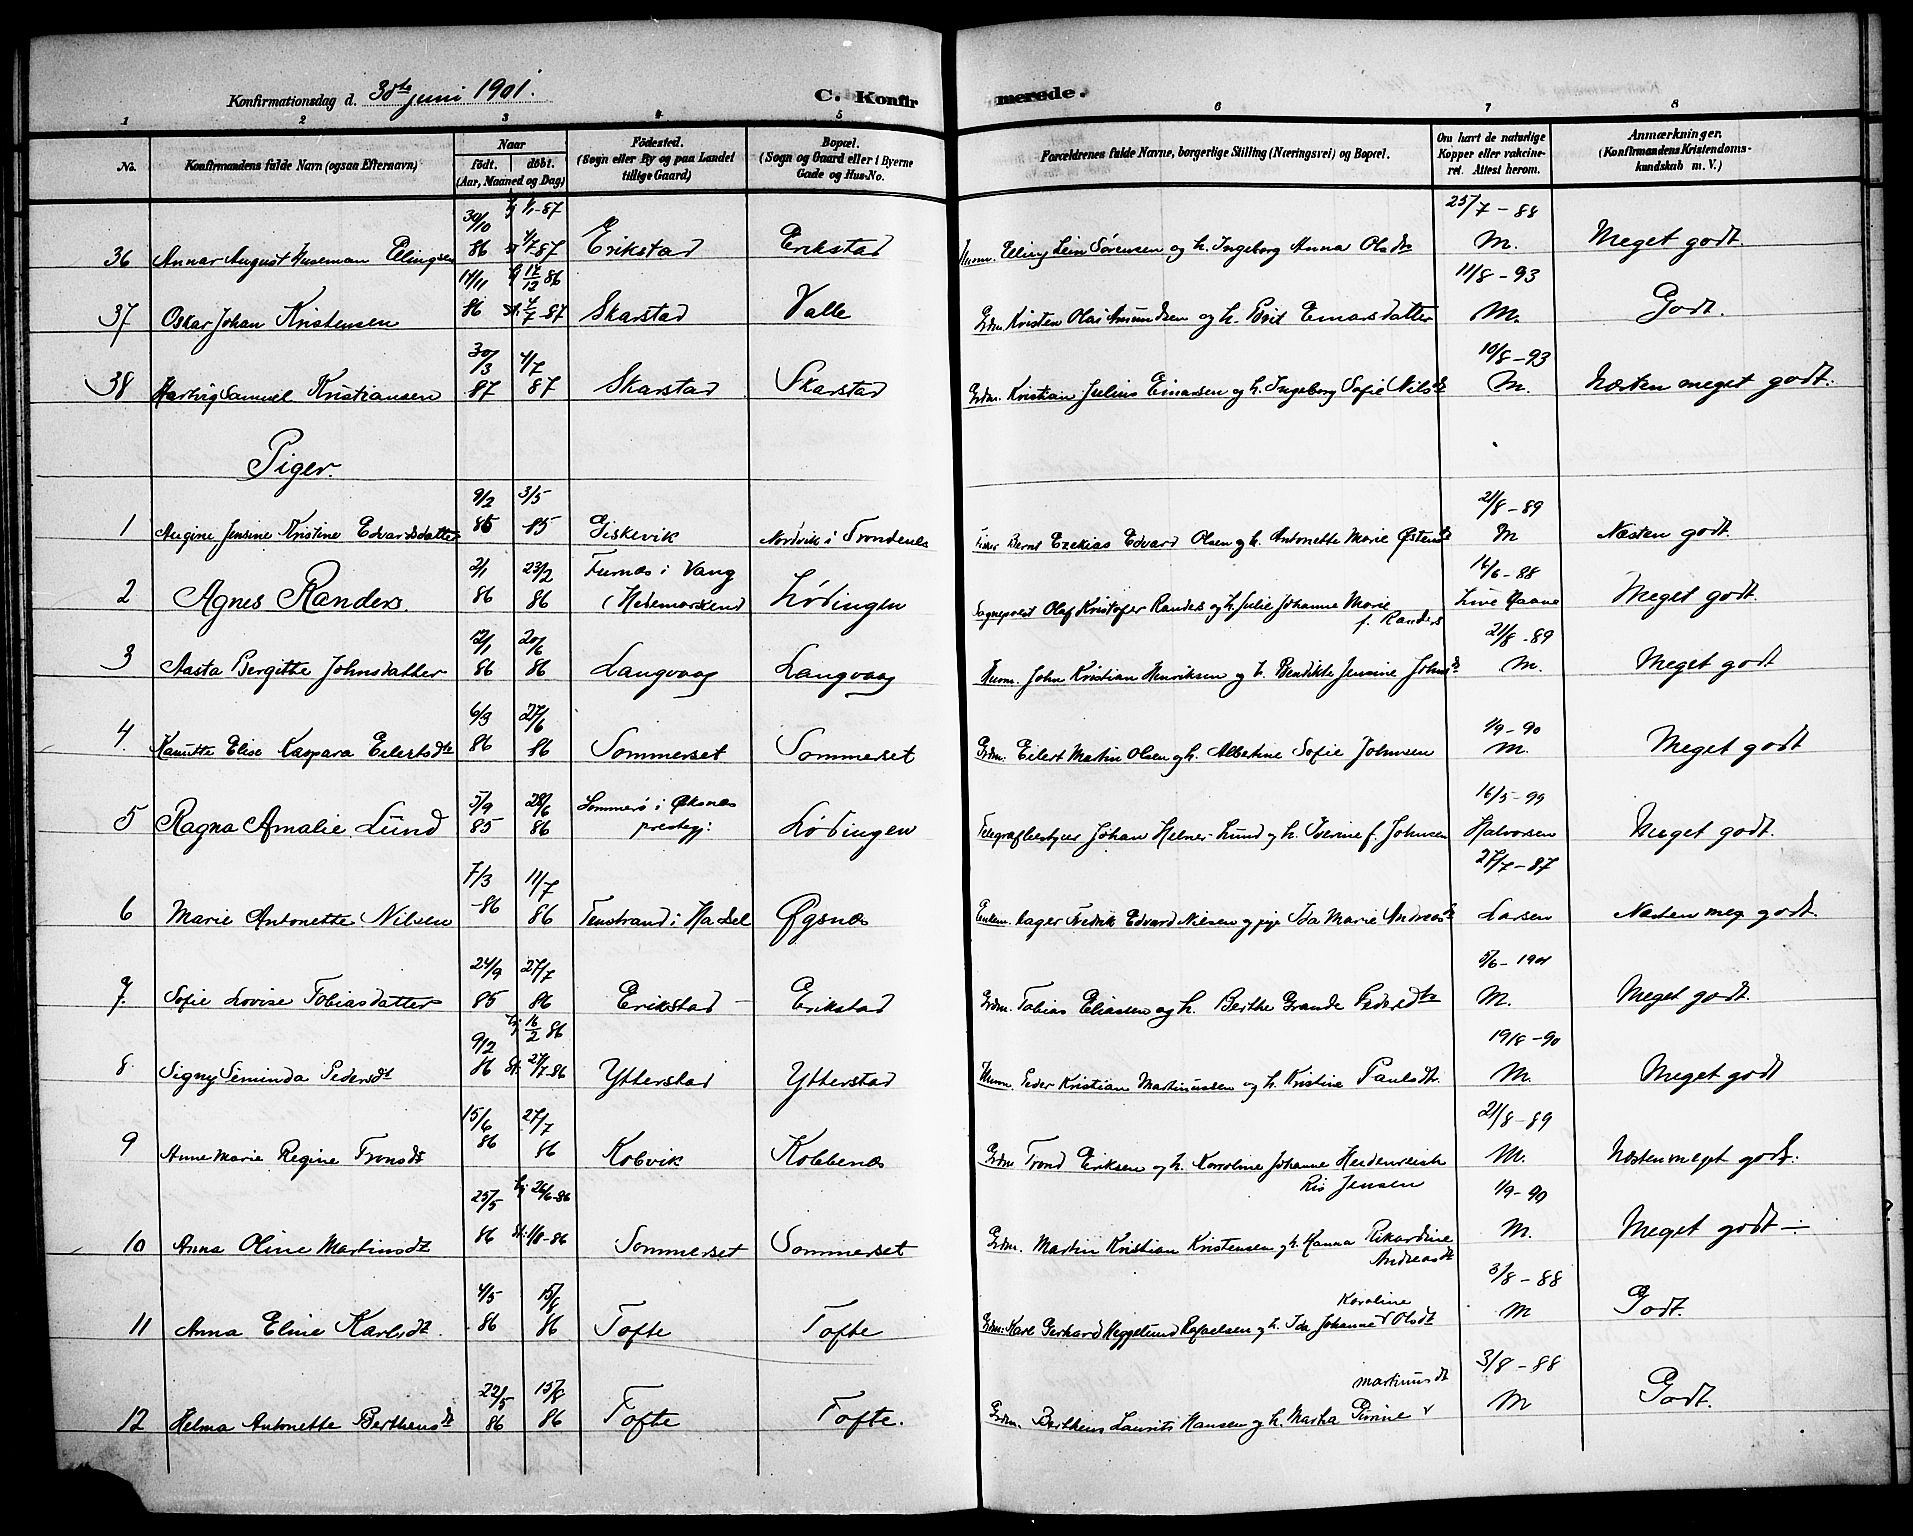 Konfirmationsdag d. 30te juni 1901. C. Konfir merede.
1 2 3 4 5 6 7 8
No. Konfirmandens fulde Navn (ogsaa Efternavn) Naar födt. döbt. (Aar, Maaned og Dag) Födested. (Sogn eller By og paa Landet tillige Gaard) Bopæl. (Sogn og Gaard eller i Byerne Gade og Hus-No. Forældrenes fulde Navne, borgerlige Stilling (Næringsvei) og Bopæl. Om havt de naturlige Kopper eller vakcineret. Attest herom. Anmærkninger. (Konfirmandens Kristendomskundskab m. V.)
36 Annar August Huseman Elingsen 30/10 86 1/1-87 4/7 87 Erikstad Erikstad Eling Leim Sørensen og h. Ingeborg Anna Olsdtr 25/7-88 M. Meget godt
37 Oskar Johan Kristensen 11/11 86 17/12 86 4/7-87 Skarstad Valle Grdm. Kristen Olai Amundsen og h. Berit Einarsdatter 11/8-93 M. Godt.
38 Hartvig Samuel Kristiansen 30/3 87 4/7 87 Skarstad Skarstad Grdm. Kristian Julius Einarsen og h. Ingeborg Sofie Nilsdt 10/8-93 M. Næsten meget godt.
Piger.
1 Augine Jensine Kristine Edvardsdatter 9/2 85 3/5 85 Giskevik Nordvik i Trondenes Fisker Bernt Ezekias Edvard Olsen og h. Antonette Marie 21/8-89 M Næsten godt.
2 Agnes Randers. 2/1 86 23/2 86 Furnæs i Vang (Hedemarken) Lødingen Sogneprest Olaf Kristofer Randers og h. Julie Johanne Marie f. Randers 14/6-88 Meget godt.
3 Aasta Bergitte Johnsdatter 12/1 86 20/6 86 Langvaag Langvaag Husm. John Kristian Henriksen og h. Bendikte Jensine Johnsdt 21/8-89 M. Meget godt
4. Kanutte Elise Kaspara Eilertsdtr 6/3 86 27/6 86 Sommerset Sommerset Grdm. Eilert Martin Olsen og h. Albertine Sofie Johnsen 1/9-90 M. Meget godt
5 Ragna Amalie Lund 5/9 85 28/6 86 Sommerø i Øksnæs prestegj: Lødingen Telegrafbestyrer Johan Helner Lund og h. Iverine f. Johnsen 16/5-99 Halvorsen Meget godt.
6 Marie Antonette Nilsen 7/3 -86 11/7 86 Tenstrand i Hadsel Øgsnæs Fredrik Edvard Nielsen og pige Ida Marie Andreasdt 27/7-87 Larsen Næsten meg. godt.
7. Sofie Lovise Tobiasdatter 24/9 85 27/7 86 Erikstad Erikstad Grdm. Tobias Eliassen og h. Berthe Grande Pedersdtr 3/6-1901 M. Meget godt.
8. Signy Seminda Pedersdt 9/2 86 hj 16/2 86 St. 27/7-86 Ytterstad Ytterstad Husm. Peder Kristian Martinussen og h. Kristine Paulsdt. 19/8-90 M. Meget godt
9 Anne Marie Regine Tronsdt 15/6 86 27/7 86 Kobvik Kobbenæs Grdm Trond Eriksen og h. Karoline Johanne Heidenreich Ris Jensen 21/8-89 M. Næsten meget godt.
10 Anna Oline Martinsdt 25/5 86 hj 26/6-86 St. 1/8-86 Sommerset Sommerset Grdm. Martin Kristian Kristensen og h. Hanna Rikardine Andreasdt 1/9-90 M. Meget godt
11 Anna Eline Karlsdt. 4/5 86 15/8 86 Tofte Tofte Grdm. Karl Gerhard Heggelund Rafaelsen og h. Ida Johanne Karoline Olsdt 3/8-88 M Godt.
12 Helma Antonette Bertheusdt 22/5 86 15/8 86 Tofte Tofte. Grdm. Bertheus Laurits Hansen og h. Martha Pirine Martinusdt 3/8-88 M Godt.